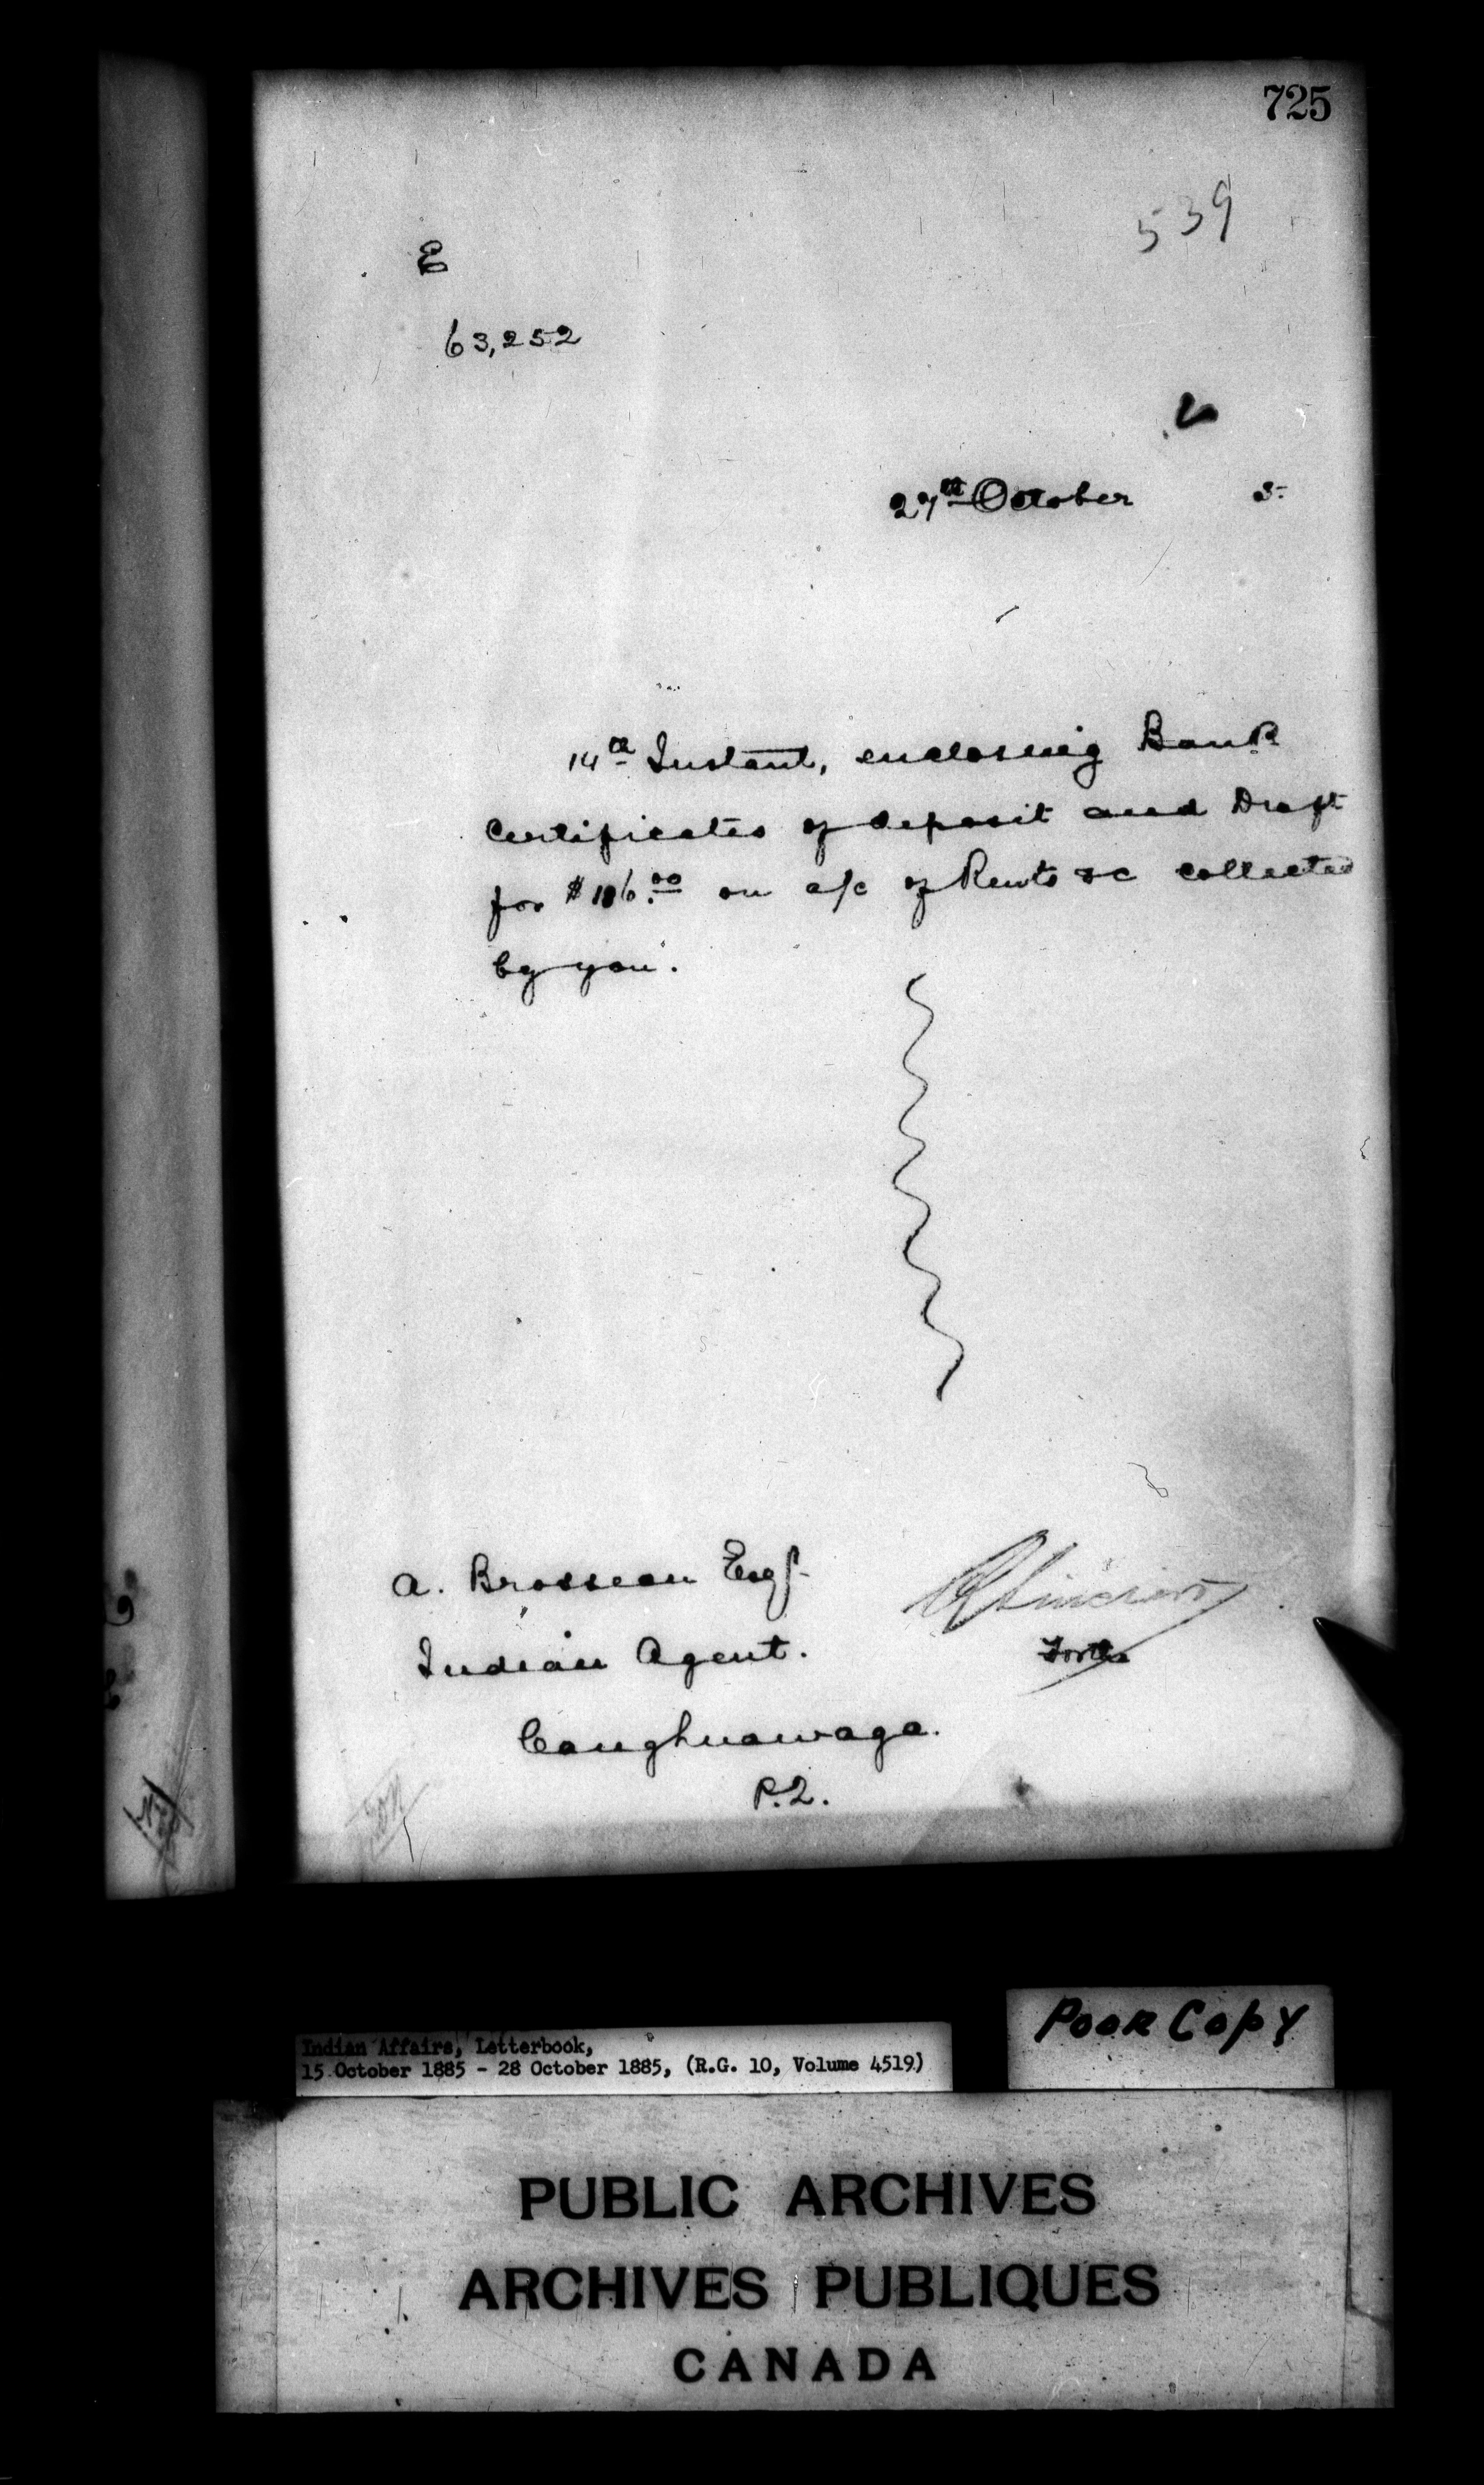 725
539
E
63,252
27th October 5
14th Instant, enclosing Bank
Certificates of deposit and Draft
for $186.00 on a/c of Rents &c collected
by you.
A. Brosseau Esqr
Indian Agent.
Caughnawaga.
P.Q.
R Sinclair
Poor Copy
Indian Affairs, Letterbook,
15 October 1885 - 28 October 1885, (R.G. 10, Volume 4519)
PUBLIC ARCHIVES
ARCHIVES PUBLIQUES
CANADA